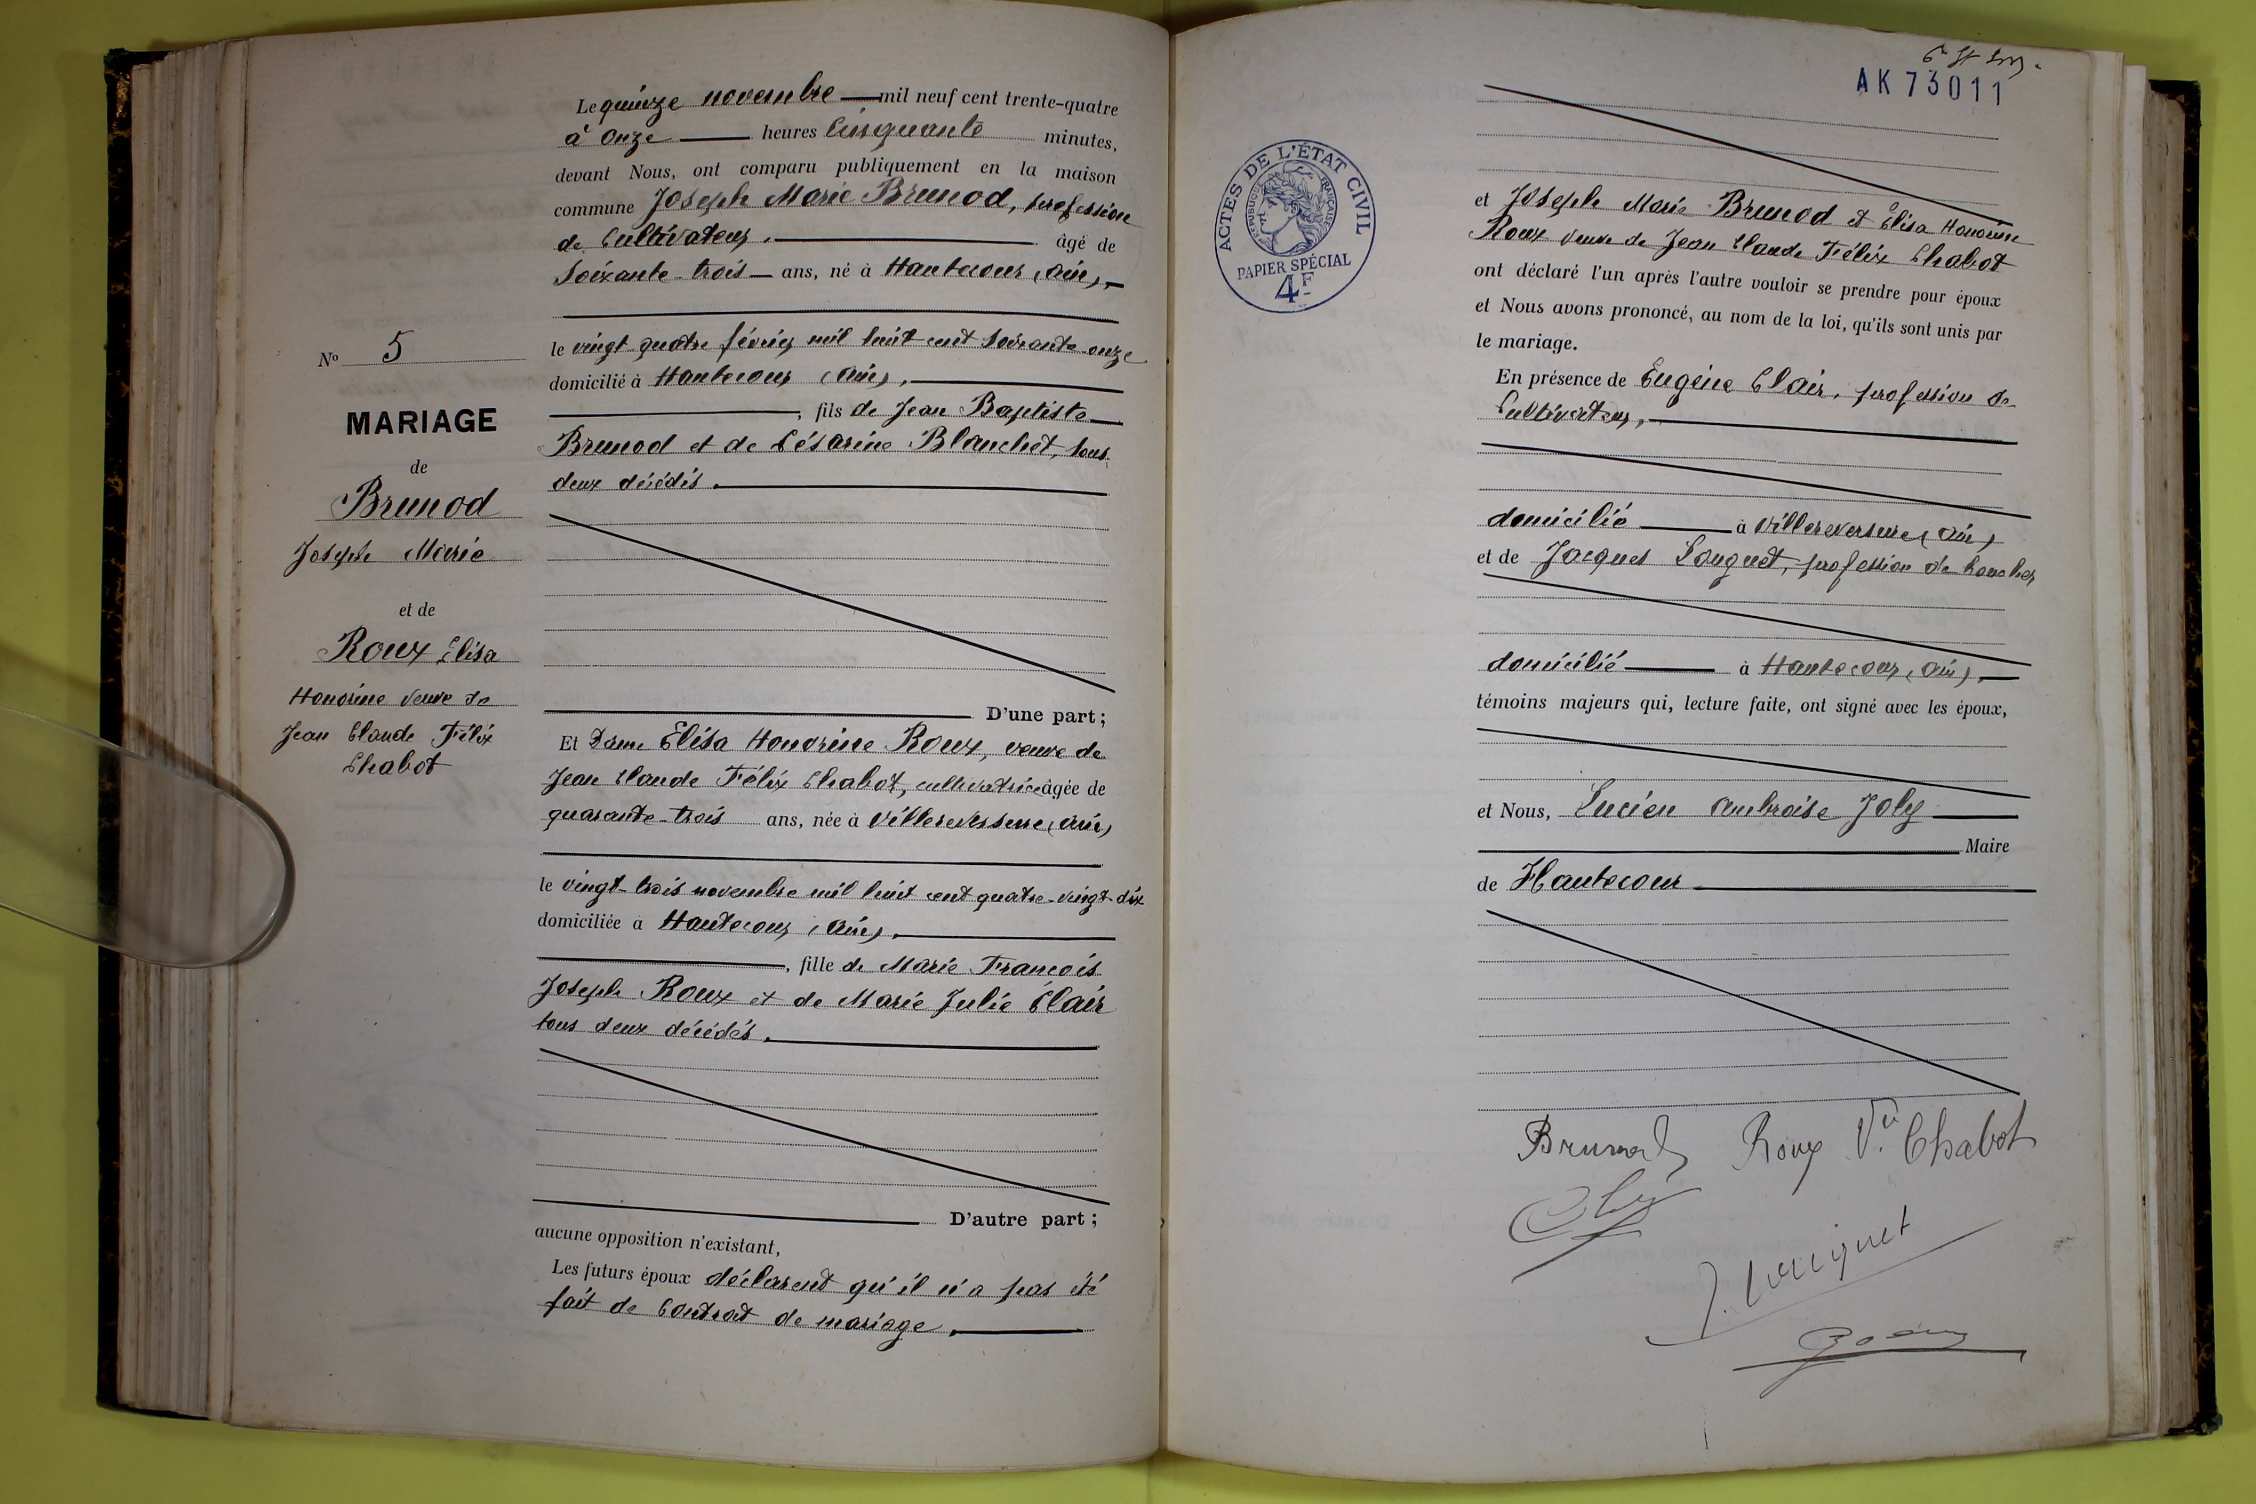 Le quinze novembre mil neuf cent trente-quatre
à onze heures cinquante minutes,
devant Nous, ont comparu publiquement en la maison
commune Joseph Marie Brunod, profession
de cultivateur, âgé de
soixante-trois ans, né à Hautecour (Ain),
le vingt-quatre février mil huit cent soixante-onze
domicilié à Hautecour (Ain),
, fils de Jean Baptiste
Brunod et de Césarine Blanchet, tous
deux décédés.
D'une part ;
Et Dame Elisa Honorine Roux, veuve de
Jean Claude Félix Chabot, cultivatrice âgée de
quarante-trois ans, née à Villereversure (Ain)
le vingt-trois novembre mil huit cent quatre-vingt-dix
domiciliée à Hautecour (Ain),
, fille de Marie François
Joseph Roux et de Marie Julie Clair
tous deux décédés.
D'autre part ;
aucune opposition n'existant,
Les futurs époux déclarent qu'il n'a pas été
fait de contrat de mariage.
N° 5
MARIAGE
de
Brunod
Joseph Marie
et de
Roux Elisa
Honorine veuve de
Jean Claude Félix
Chabot
AK 73011
ACTES DE L'ÉTAT CIVIL
RÉPUBLIQUE FRANÇAISE
PAPIER SPÉCIAL
4F
et Joseph Marie Brunod et Elisa Honorine
Roux veuve de Jean Claude Félix Chabot
ont déclaré l'un après l'autre vouloir se prendre pour époux
et Nous avons prononcé, au nom de la loi, qu'ils sont unis par
le mariage.
En présence de Eugène Clair, profession de
cultivateur,
domicilié à Villereversure (Ain)
et de Jacques Longuet, profession de boucher
domicilié à Hautecour (Ain),
témoins majeurs qui, lecture faite, ont signé avec les époux,
et Nous, Lucien Ambroise Joly
Maire
de Hautecour
Brunod Roux Vve Chabot